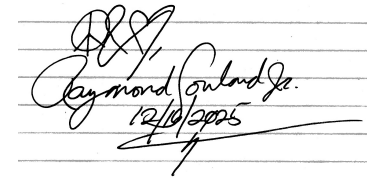 ☮&♡,
Raymond Rowland Jr.
12/10/2025